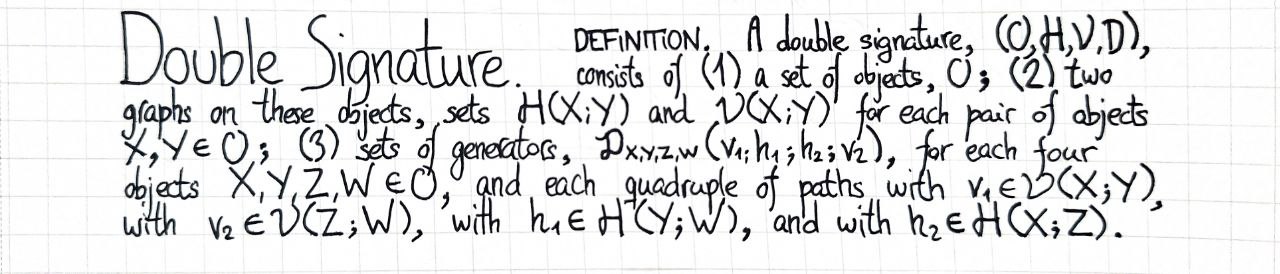 Double Signature. DEFINITION. A double signature, (O,H,V,D),
consists of (1) a set of objects, O; (2) two
graphs on these objects, sets H(X;Y) and V(X;Y) for each pair of objects
X,Y∈O; (3) sets of generators, D_{X,Y,Z,W}(v₁;h₁;h₂;v₂), for each four
objects X,Y,Z,W∈O, and each quadruple of paths with v₁∈V(X;Y),
with v₂∈V(Z;W), with h₁∈H(Y;W), and with h₂∈H(X;Z).